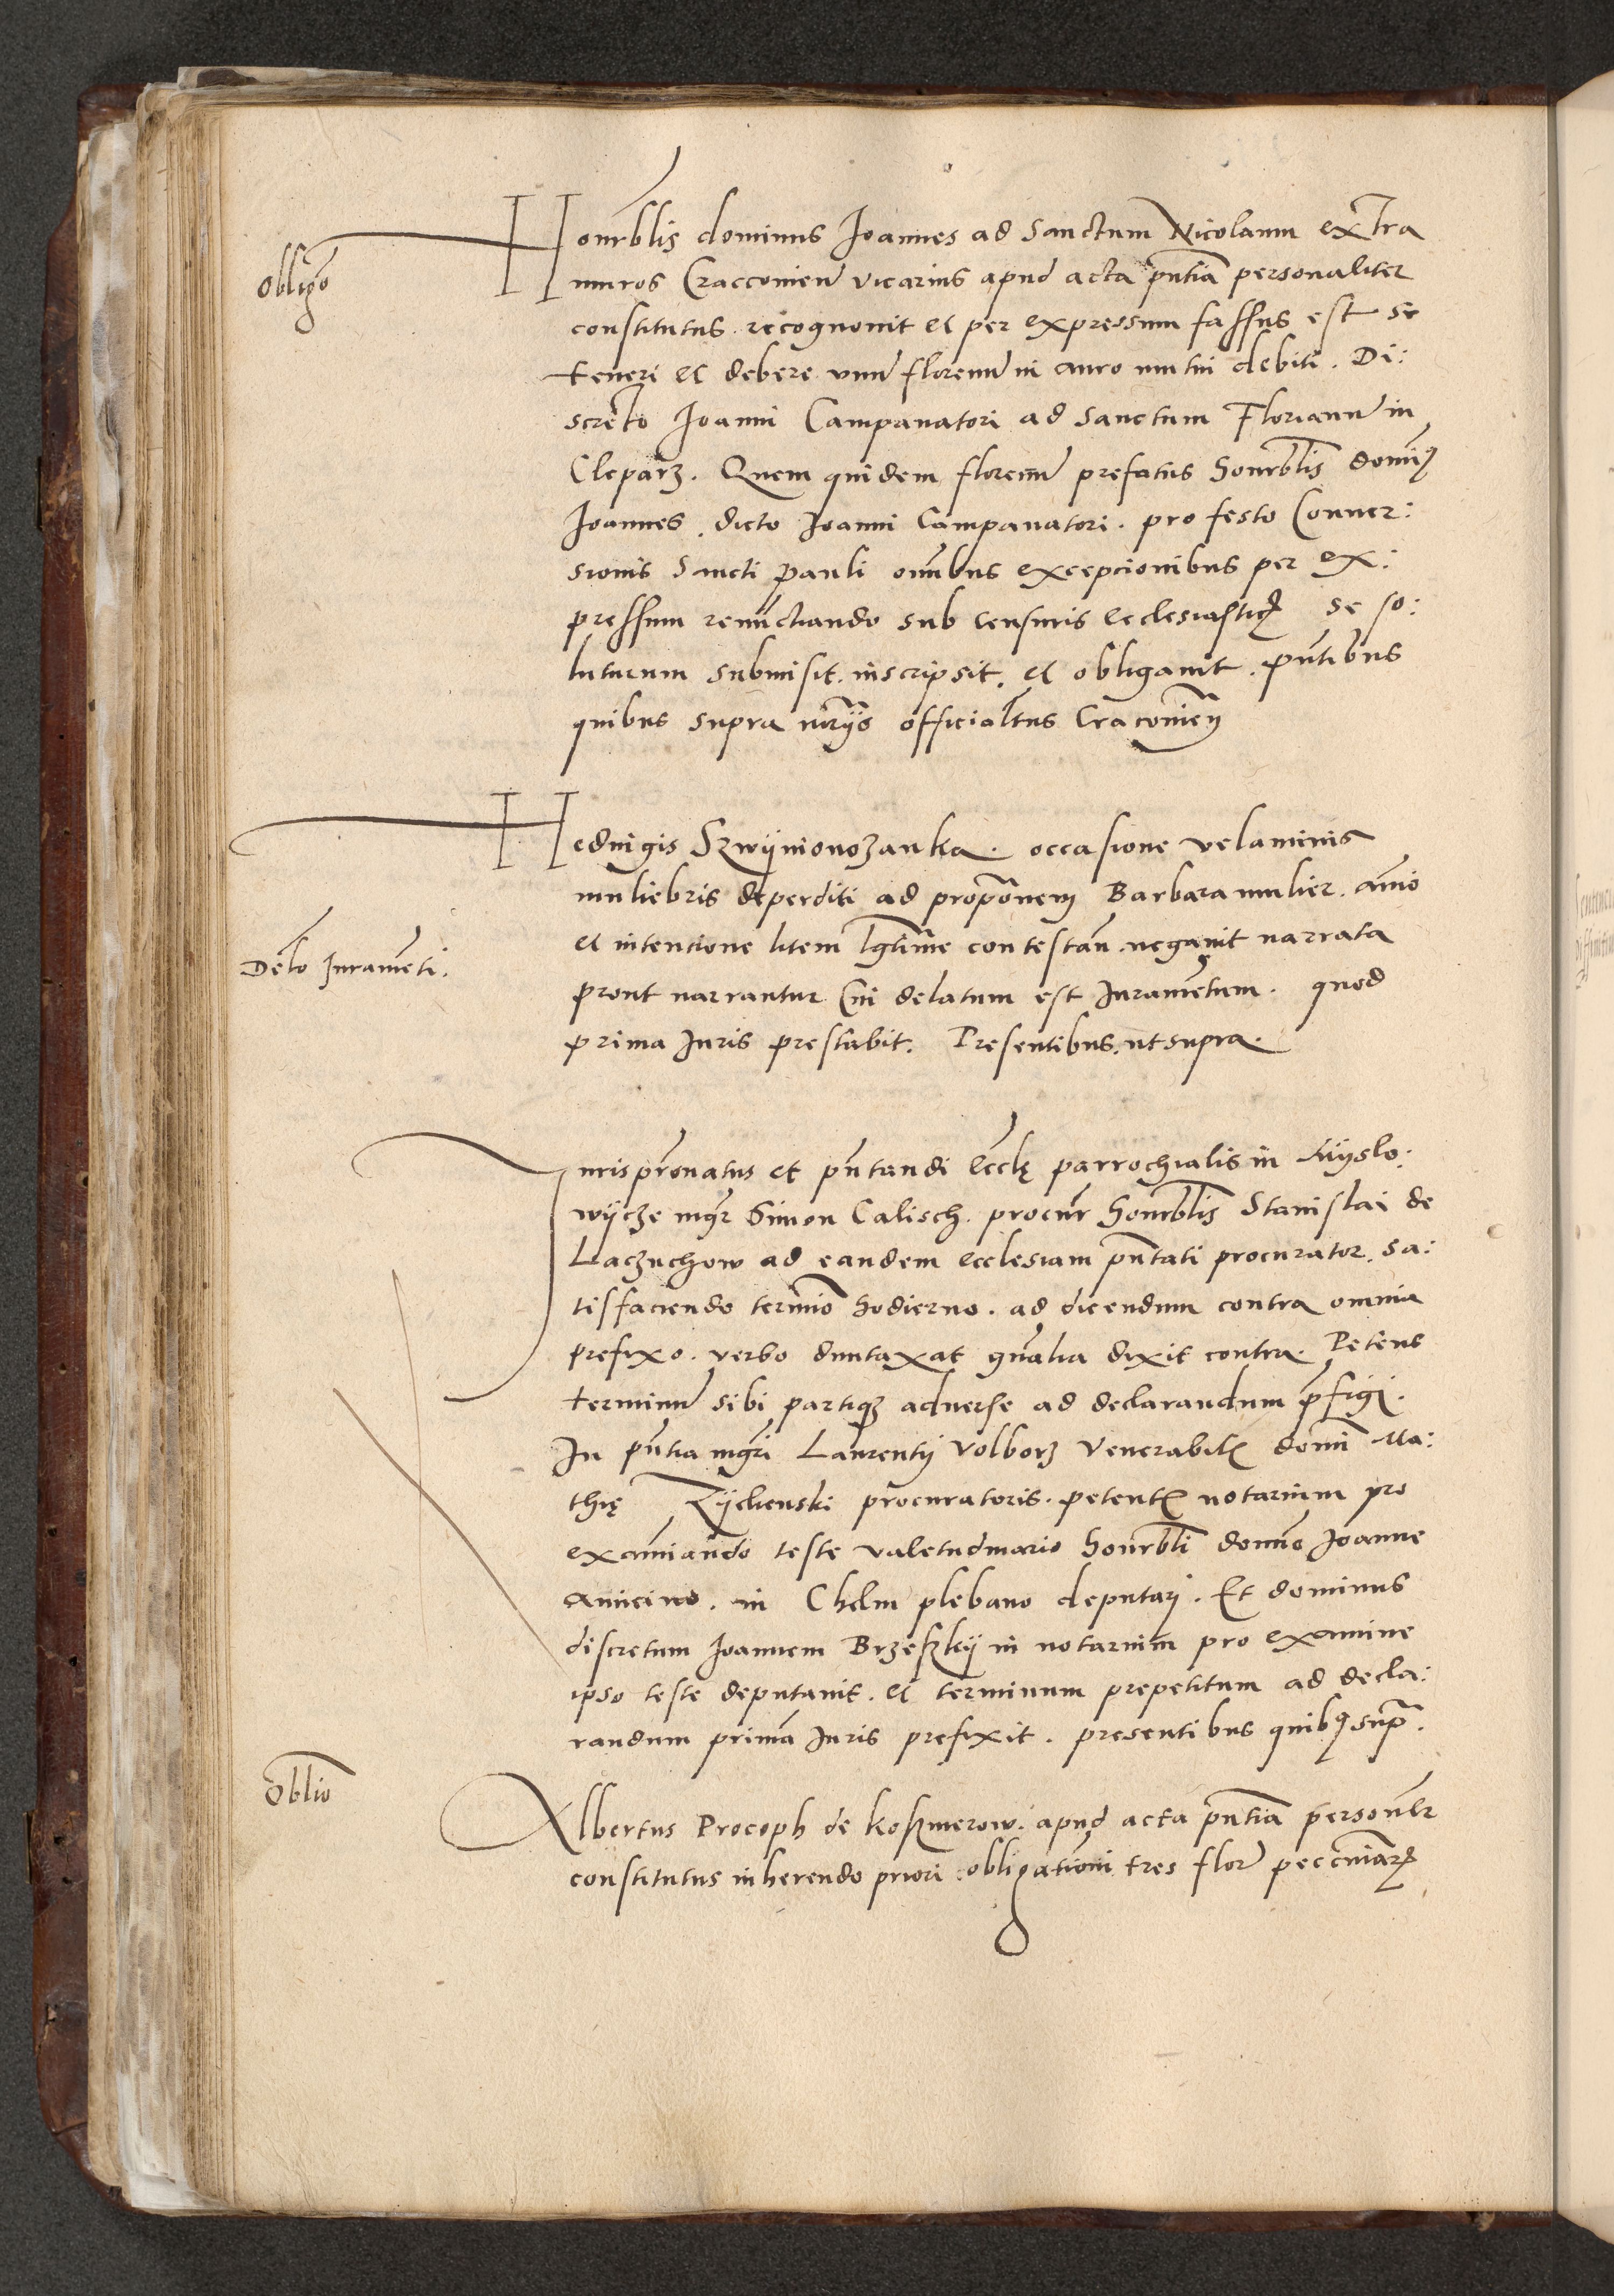 Obligo
Honrblis dominus Joannes ad Sanctum Nicolaum extra
muros Cracconien vicarius apud acta pntia personaliter
constitutus recognouit et per expressum fassus est se
teneri et debere vnu florenu in auro mutui debiti. Di:
screto Joanni Campanatori ad Sanctum Florianu in
Cleparz. Quem quidem florenu prefatus honrblis domin9
Joannes, dicto Joanni Campanatori. pro festo Conuer:
sionis Sancti Pauli omibus excepcionibus per ex:
pressum renunctiando sub censuris ecclesiastic se so:
luturum submisit. inscripsit. et obligauit. pntibus
quibus supra notarys officialtus Craconien
Heduigis Szwÿnionozanka. occasione velaminis
muliebris deperditi ad proponem Barbara mulier. aio
Delo Juramenti.
et intentione litem lgtime contestan. negauit narrata
prout narrantur Cui delatum est Juramentum. quod
prima Juris prestabit. Presentibus. ut supra.
Juris pronatus et pntandi eccle parrochialis in Mÿslo:
wÿcze mgr Simon Calisch. procur honrblis Stanislai de
Laczuchow ad eandem ecclesiam pntati procurator. sa:
tisfaciendo termino hodierno. ad dicendum contra omnia
prefixo. verbo duntaxat gnalia dixit contra. Petens
terminu sibi partiq3 aduerse ad declarandum pfigi.
In pntia mgri Laurentij Volborz Venerabil domi Ma:
thię Zÿchenski procuratoris. petent notarium pro
examinando teste valetudinario honrbli domno Joanne
amicino. in Chelm plebano deputari. Et dominus
discretum Joannem Brzeskÿ in notarium pro examine
ipso teste deputauit. et terminum prepetitum ad decla:
randum prima Juris prefixit. presentibus quib9 supr.
Oblio
Albertus Procoph de Koszmerow. apud acta pntia personlr
constitutus inherendo priori obligationi tres flor pecuniar